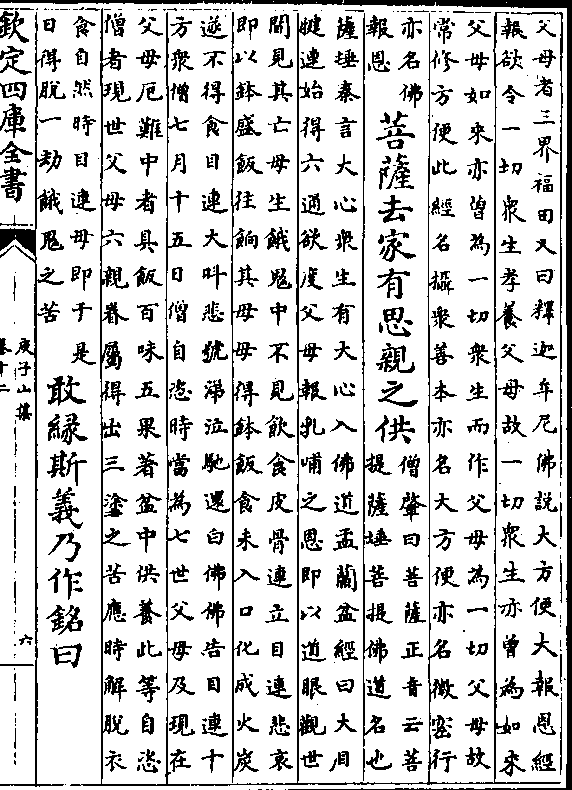 父母者三界福田又曰釋迦牟尼佛說大方便大報恩經
報欲令一切衆生孝養父母故一切衆生亦曾為如來
父母如來亦曾為一切衆生而作父母為一切父母故
常修方便此經名攝衆善本亦名大方便亦名微密行
亦名佛
報恩
菩薩去家有思親之供
僧肇曰菩薩正音云菩
提薩埵菩提佛道名也
薩埵秦言大心衆生有大心入佛道盂蘭盆經曰大目
犍連始得六通欲度父母報乳哺之恩即以道眼觀世
間見其亡母生餓鬼中不見飲食皮骨連立目連悲哀
即以鉢盛飯往餉其母母得鉢飯食未入口化成火炭
遂不得食目連大叫悲號涕泣馳還白佛佛告目連十
方衆僧七月十五日僧自恣時當為七世父母及現在
父母厄難中者具飯百味五果著盆中供養此等自恣
僧者現世父母六親眷屬得出三塗之苦應時解脫衣
食自然時目連母即于是
日得脫一劫餓鬼之苦
敢緣斯義乃作銘曰
欽定四庫全書
庾子山集
卷十二
六